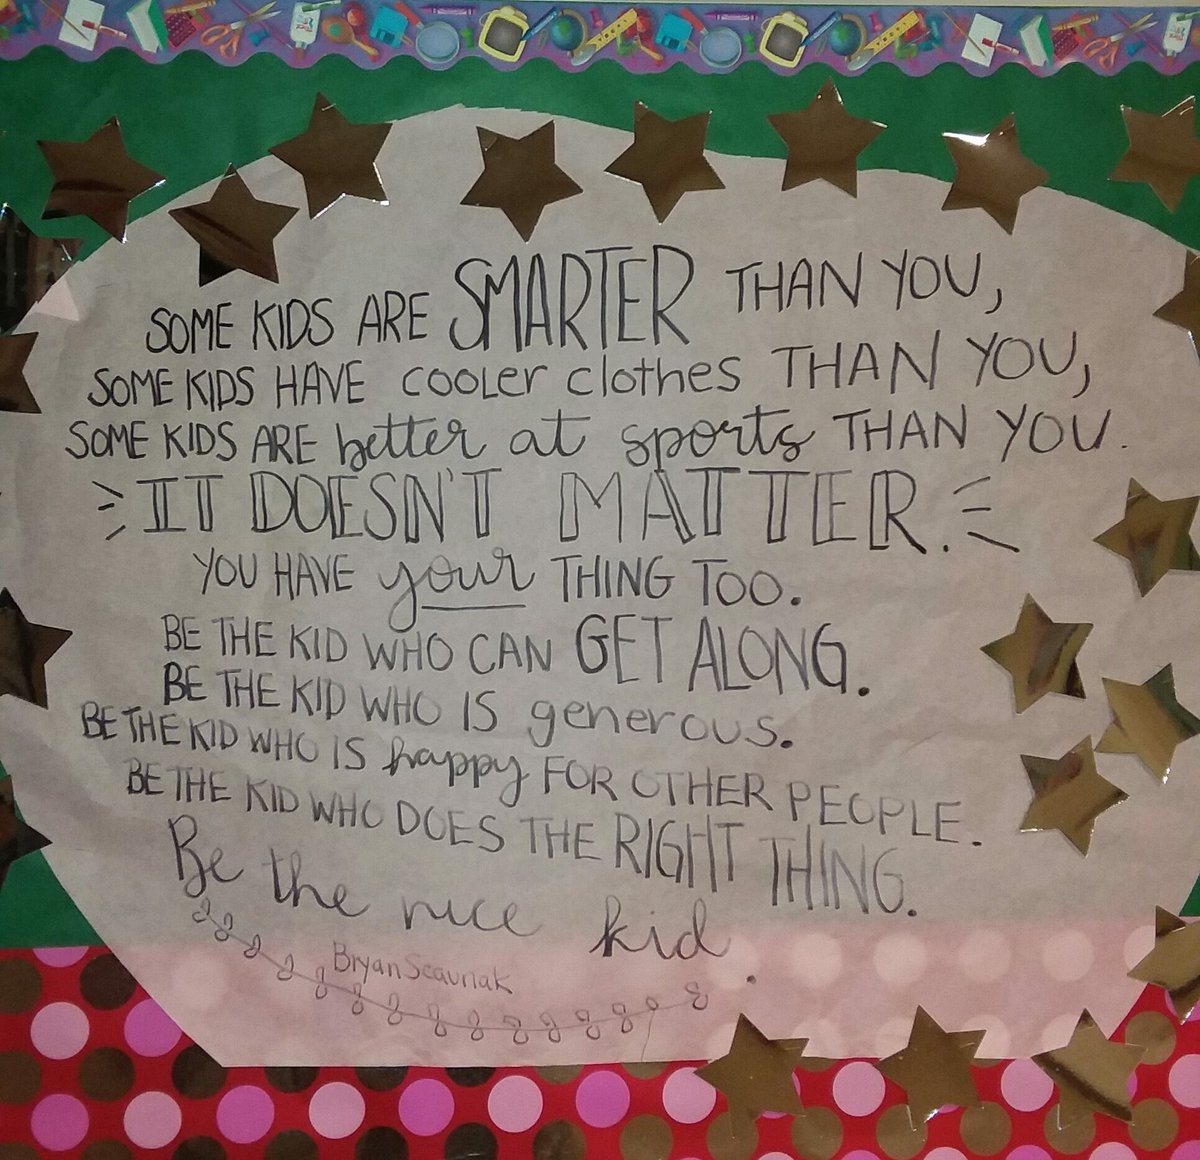 SOME KIDS ARE SMARTER THAN YOU,
SOME KIDS HAVE COOLER clothes THAN YOU,
SOME KIDS ARE better at sports THAN YOU.
IT DOESN'T MATTER.
YOU HAVE your THING TOO.
BE THE KID WHO CAN GET ALONG.
BE THE KID WHO IS generous.
BE THE KID WHO IS happy FOR OTHER PEOPLE.
BE THE KID WHO DOES THE RIGHT THING.
Be the nice kid.
Bryan Scavnak